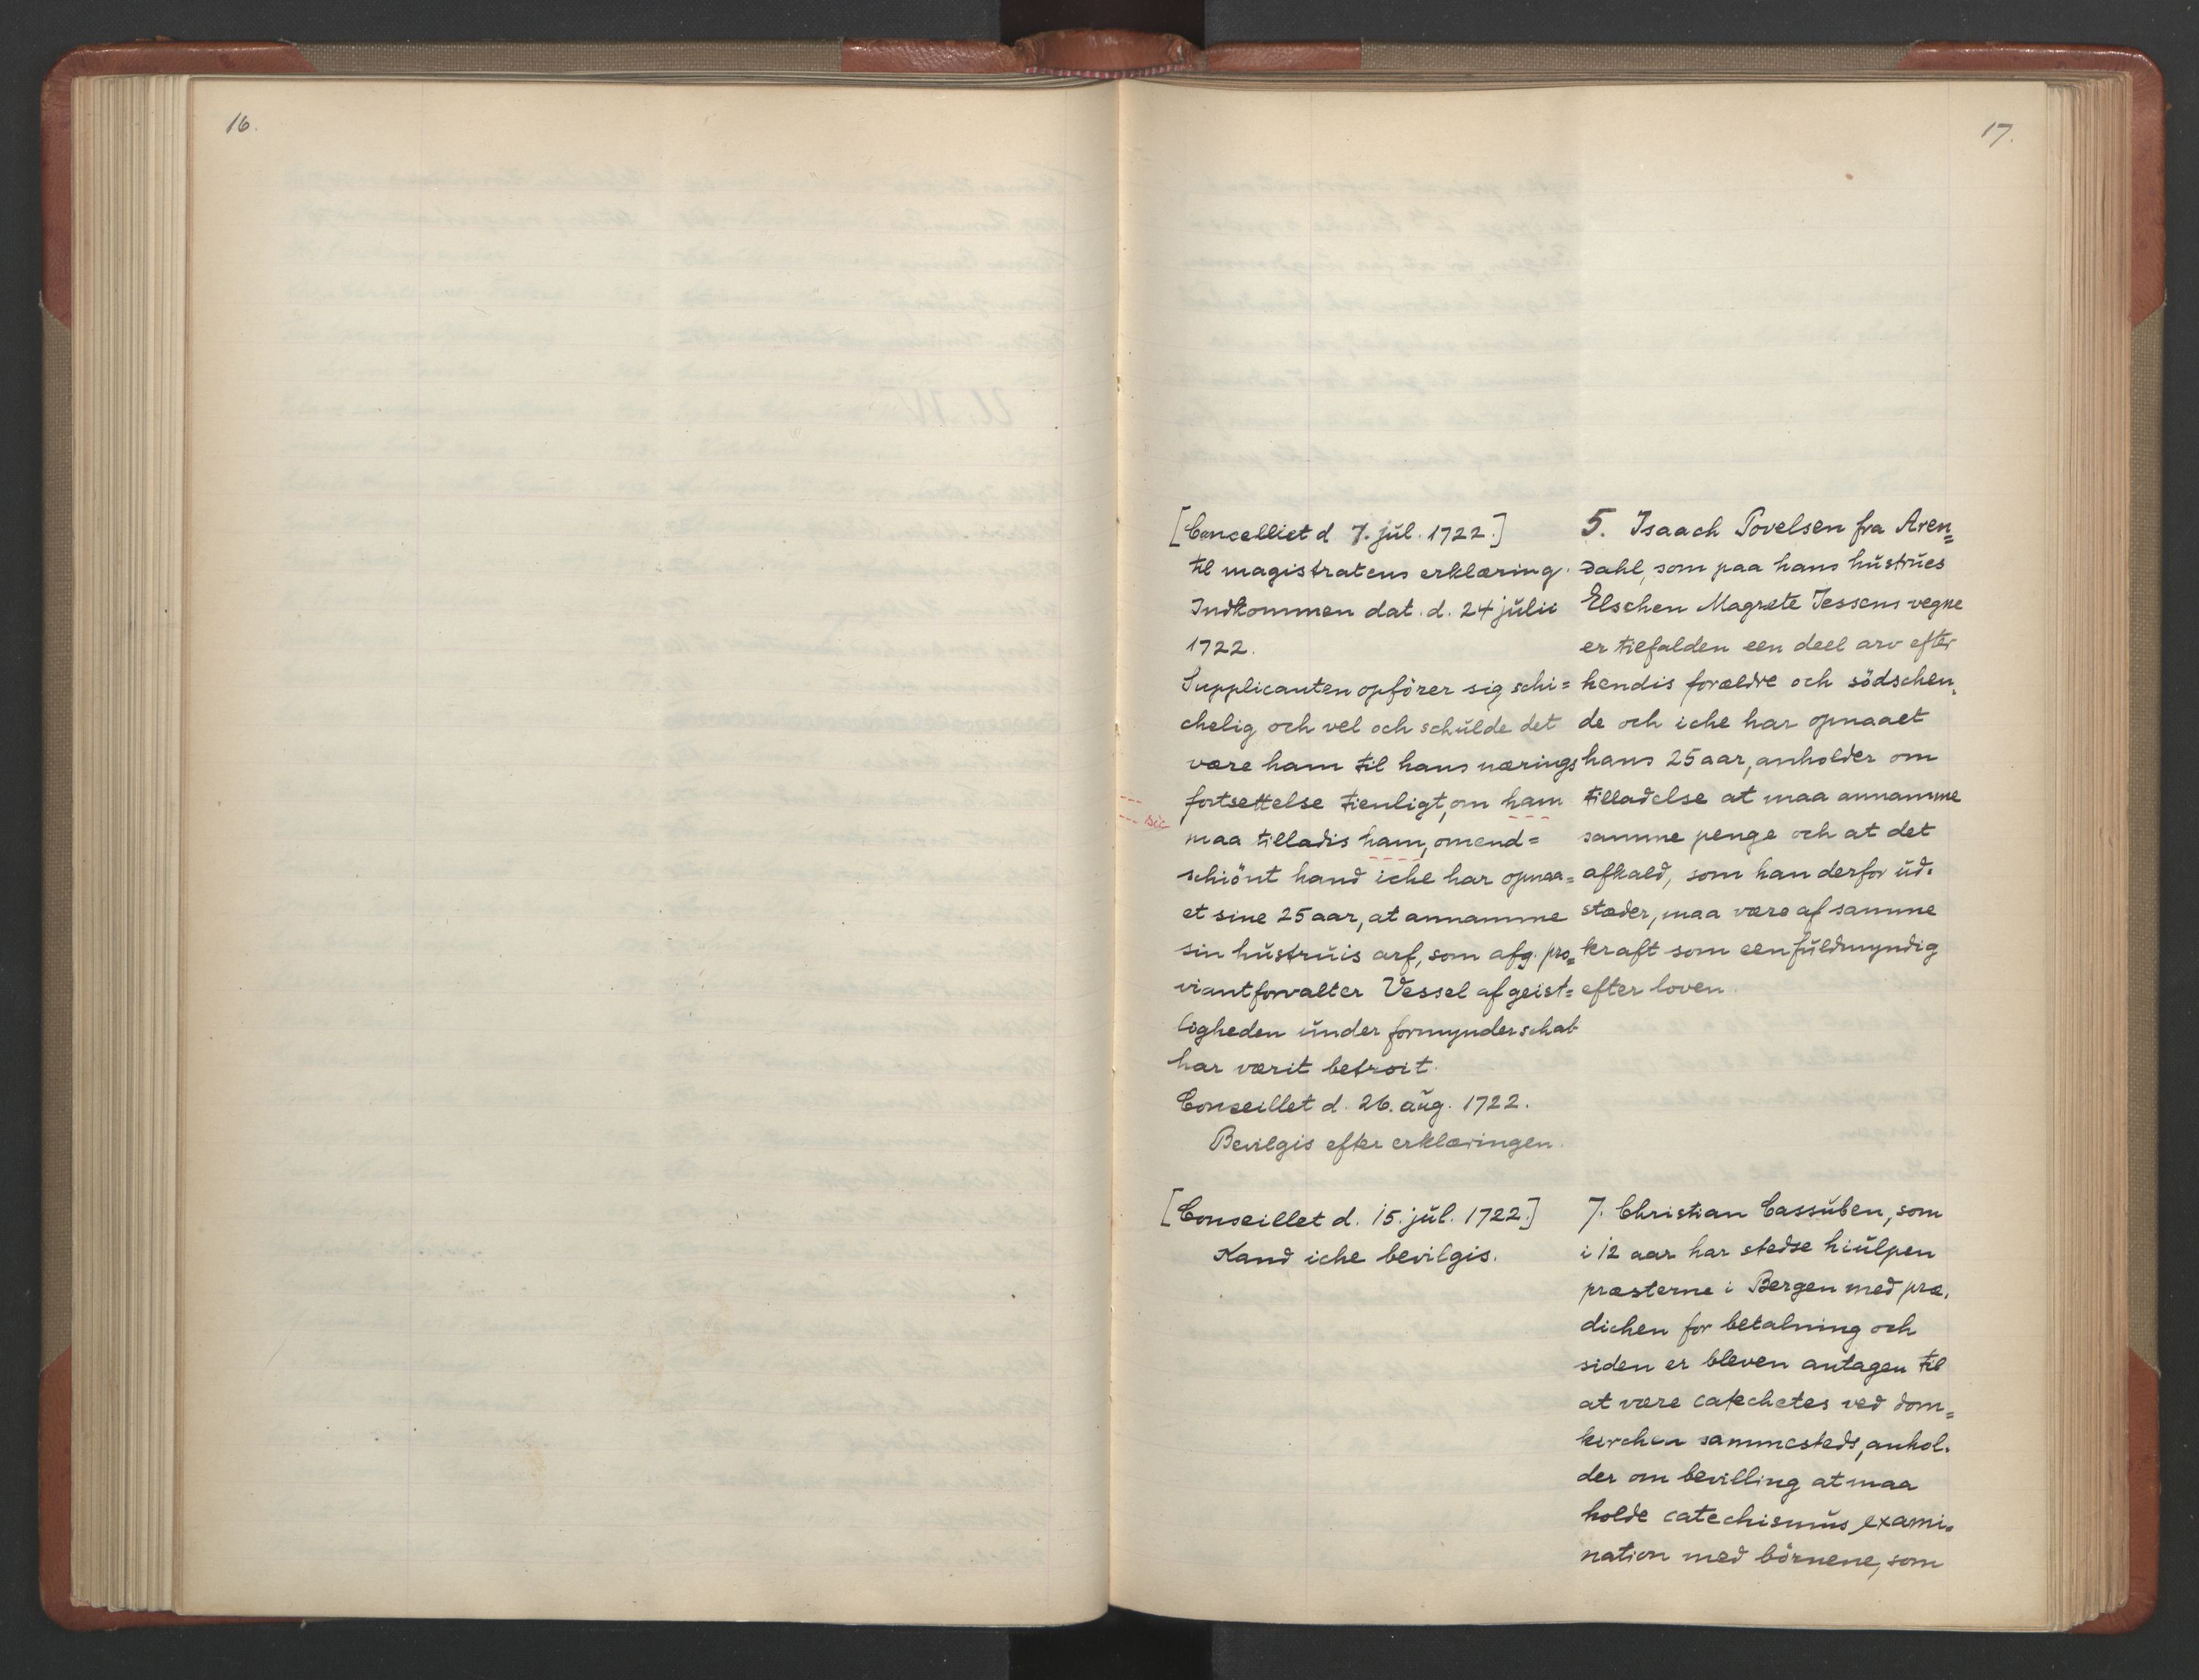 16.
17.
[Cancelliet d 7. jul. 1722.]
til magistratens erklæring.
Indkommen dat. d. 24 julii
1722.
Supplicanten opförer sig schi=
chelig och vel och schulde det
være ham til hans nærings
fortsettelse tienligt, om ham
sic
maa tilladis ham, omend=
schiönt hand iche har opnaa=
et sine 25 aar, at annamme
sin hustruis arf, som afg. pro=
viantforvalter Vessel af geist=
ligheden under formynderschab
har værit betroit.
Conseillet d. 26. aug. 1722.
Bevilgis efter erklæringen.
5. Isaach Povelsen fra Aren=
dahl, som paa hans hustrues
Elschen Magrete Jessens vegne
er tilfalden een deel arv efter
hendis forældre och södschen=
de och iche har opnaaet
hans 25 aar, anholder om
tilladelse at maa annamme
samme penge och at det
afkald, som han derfor ud=
stæder, maa være af samme
kraft som een fuldmyndig
efter loven.
[Conseillet d. 15. jul. 1722.]
Kand iche bevilgis.
7. Christian Cassuben, som
i 12 aar har stedse hiulpen
præsterne i Bergen med præ=
dichen for betalning och
siden er bleven antagen til
at være catechetes ved dom=
kirchen sammesteds, anhol=
der om bevilling at maa
holde catechismus exami=
nation med börnene, som